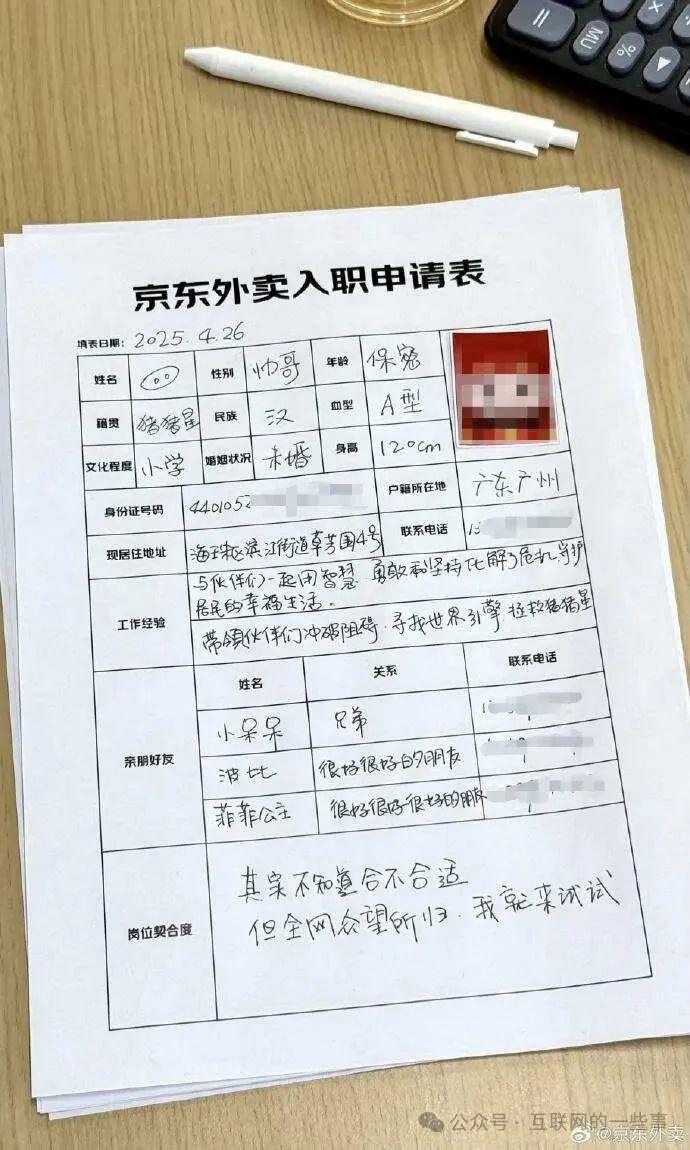 京东外卖入职申请表
填表日期：2025.4.26
姓名 性别 帅哥 年龄 保密
籍贯 猪猪星 民族 汉 血型 A型
文化程度 小学 婚姻状况 未婚 身高 120cm
身份证号码 440105 户籍所在地 广东广州
现居住地址 海珠区滨江街道草芳围4号 联系电话 13
工作经验
与伙伴们一起用智慧 勇敢和坚持化解了危机,守护
居民的幸福生活。
带领伙伴们冲破阻碍.寻找世界引擎 拯救猪猪星
亲朋好友
姓名 关系 联系电话
小呆呆 兄弟
波比 很好很好的朋友
菲菲公主 很好很好很好的朋友
岗位契合度
其实不知道合不合适
但全网众望所归.我就来试试
= MU %
公众号·互联网的一些事
@京东外卖